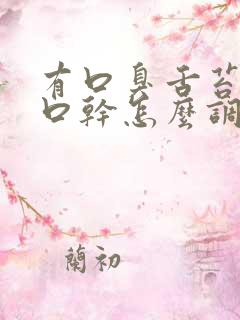 有口臭舌苔
口幹怎麼調
蘭初